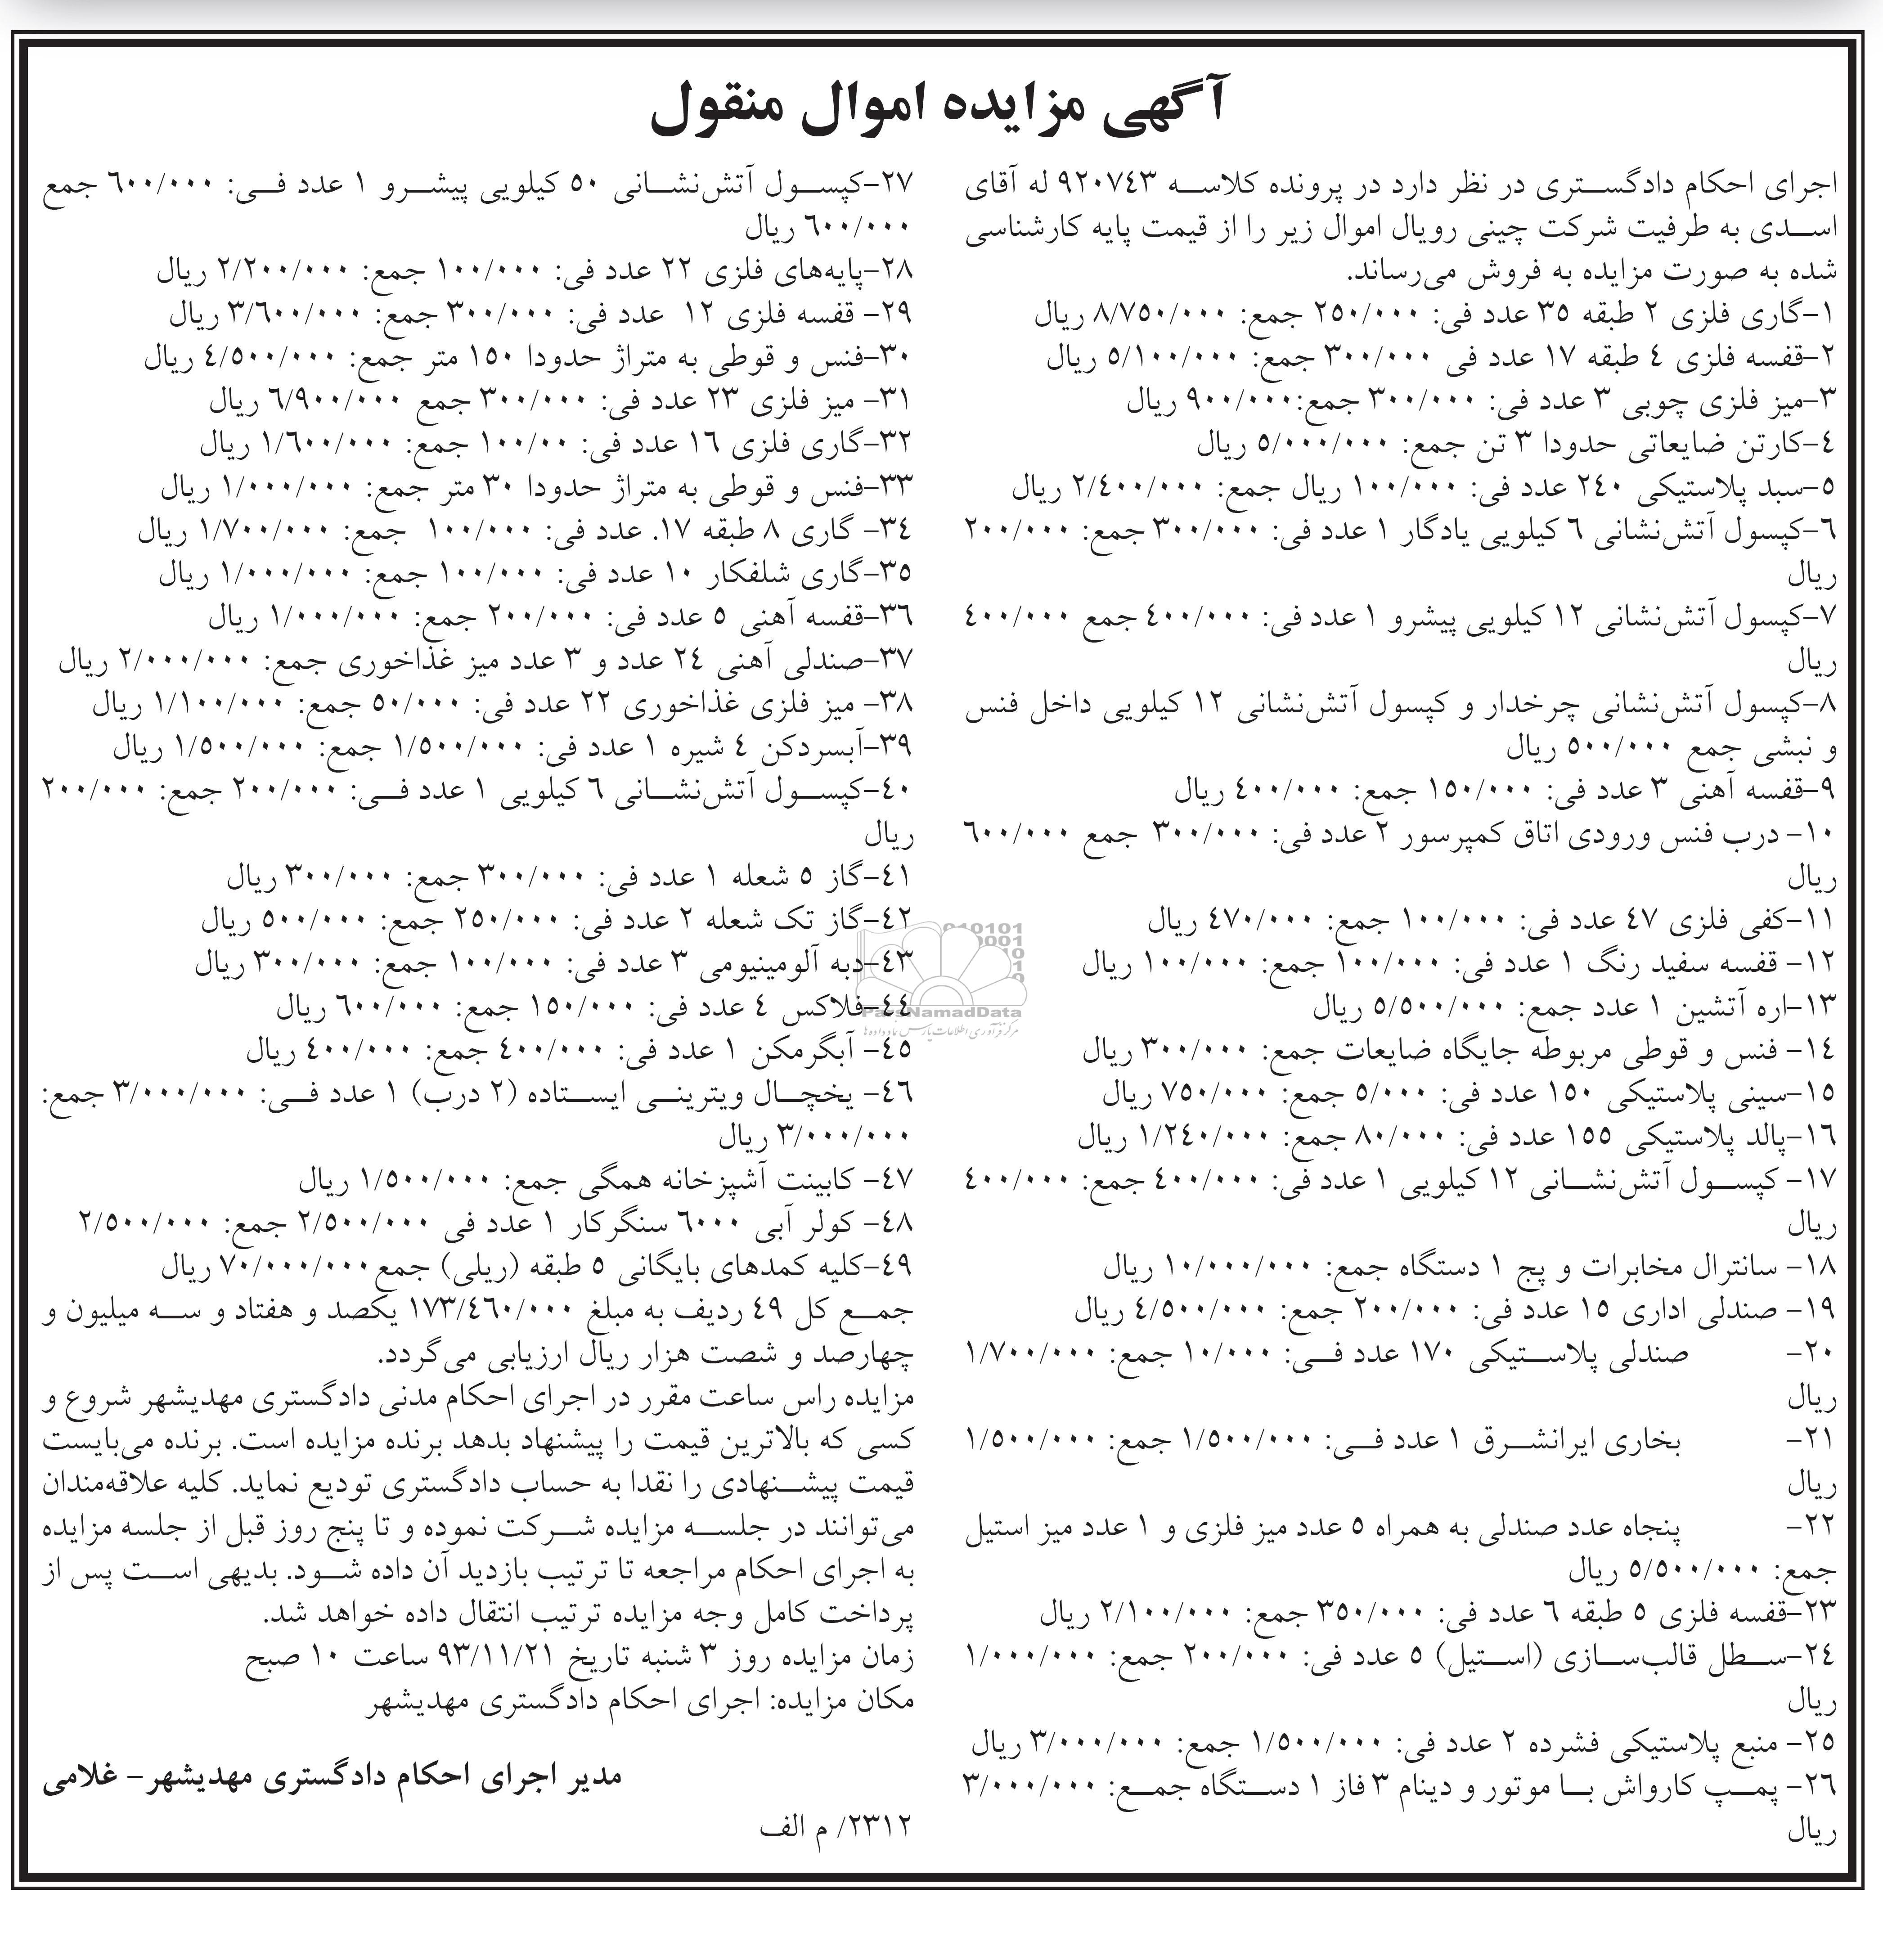 آگهی مزایده اموال منقول
اجرای احکام دادگستری در نظر دارد در پرونده کلاسه ۹۲۰۷٤۳ له آقای
اسدی به طرفیت شرکت چینی رویال اموال زیر را از قیمت پایه کارشناسی
شده به صورت مزایده به فروش می‌رساند.
۱-گاری فلزی ۲ طبقه ۳٥ عدد فی: ۲٥۰/۰۰۰ جمع: ۸/۷٥۰/۰۰۰ ریال
۲-قفسه فلزی ٤ طبقه ۱۷ عدد فی ۳۰۰/۰۰۰ جمع: ٥/۱۰۰/۰۰۰ ریال
۳-میز فلزی چوبی ۳ عدد فی: ۳۰۰/۰۰۰ جمع:۹۰۰/۰۰۰ ریال
٤-کارتن ضایعاتی حدودا ۳ تن جمع: ٥/۰۰۰/۰۰۰ ریال
٥-سبد پلاستیکی ۲٤۰ عدد فی: ۱۰۰/۰۰۰ ریال جمع: ۲/٤۰۰/۰۰۰ ریال
٦-کپسول آتش‌نشانی ٦ کیلویی یادگار ۱ عدد فی: ۳۰۰/۰۰۰ جمع: ۲۰۰/۰۰۰
ریال
۷-کپسول آتش‌نشانی ۱۲ کیلویی پیشرو ۱ عدد فی: ٤۰۰/۰۰۰ جمع ٤۰۰/۰۰۰
ریال
۸-کپسول آتش‌نشانی چرخدار و کپسول آتش‌نشانی ۱۲ کیلویی داخل فنس
و نبشی جمع ٥۰۰/۰۰۰ ریال
۹-قفسه آهنی ۳ عدد فی: ۱٥۰/۰۰۰ جمع: ٤۰۰/۰۰۰ ریال
۱۰- درب فنس ورودی اتاق کمپرسور ۲ عدد فی: ۳۰۰/۰۰۰ جمع ٦۰۰/۰۰۰
ریال
۱۱-کفی فلزی ٤۷ عدد فی: ۱۰۰/۰۰۰ جمع: ٤۷۰/۰۰۰ ریال
۱۲- قفسه سفید رنگ ۱ عدد فی: ۱۰۰/۰۰۰ جمع: ۱۰۰/۰۰۰ ریال
۱۳-اره آتشین ۱ عدد جمع: ٥/٥۰۰/۰۰۰ ریال
۱٤- فنس و قوطی مربوطه جایگاه ضایعات جمع: ۳۰۰/۰۰۰ ریال
۱٥-سینی پلاستیکی ۱٥۰ عدد فی: ٥/۰۰۰ جمع: ۷٥۰/۰۰۰ ریال
۱٦-پالد پلاستیکی ۱٥٥ عدد فی: ۸۰/۰۰۰ جمع: ۱/۲٤۰/۰۰۰ ریال
۱۷- کپسول آتش‌نشانی ۱۲ کیلویی ۱ عدد فی: ٤۰۰/۰۰۰ جمع: ٤۰۰/۰۰۰
ریال
۱۸- سانترال مخابرات و پج ۱ دستگاه جمع: ۱۰/۰۰۰/۰۰۰ ریال
۱۹- صندلی اداری ۱٥ عدد فی: ۲۰۰/۰۰۰ جمع: ٤/٥۰۰/۰۰۰ ریال
۲۰- صندلی پلاستیکی ۱۷۰ عدد فی: ۱۰/۰۰۰ جمع: ۱/۷۰۰/۰۰۰
ریال
۲۱- بخاری ایرانشرق ۱ عدد فی: ۱/٥۰۰/۰۰۰ جمع: ۱/٥۰۰/۰۰۰
ریال
۲۲- پنجاه عدد صندلی به همراه ٥ عدد میز فلزی و ۱ عدد میز استیل
جمع: ٥/٥۰۰/۰۰۰ ریال
۲۳-قفسه فلزی ٥ طبقه ٦ عدد فی: ۳٥۰/۰۰۰ جمع: ۲/۱۰۰/۰۰۰ ریال
۲٤-سطل قالب‌سازی (استیل) ٥ عدد فی: ۲۰۰/۰۰۰ جمع: ۱/۰۰۰/۰۰۰
ریال
۲٥- منبع پلاستیکی فشرده ۲ عدد فی: ۱/٥۰۰/۰۰۰ جمع: ۳/۰۰۰/۰۰۰ ریال
۲٦- پمپ کارواش با موتور و دینام ۳ فاز ۱ دستگاه جمع: ۳/۰۰۰/۰۰۰
ریال
۲۷-کپسول آتش‌نشانی ٥۰ کیلویی پیشرو ۱ عدد فی: ٦۰۰/۰۰۰ جمع
٦۰۰/۰۰۰ ریال
۲۸-پایه‌های فلزی ۲۲ عدد فی: ۱۰۰/۰۰۰ جمع: ۲/۲۰۰/۰۰۰ ریال
۲۹- قفسه فلزی ۱۲ عدد فی: ۳۰۰/۰۰۰ جمع: ۳/٦۰۰/۰۰۰ ریال
۳۰-فنس و قوطی به متراژ حدودا ۱٥۰ متر جمع: ٤/٥۰۰/۰۰۰ ریال
۳۱- میز فلزی ۲۳ عدد فی: ۳۰۰/۰۰۰ جمع ٦/۹۰۰/۰۰۰ ریال
۳۲-گاری فلزی ۱٦ عدد فی: ۱۰۰/۰۰ جمع: ۱/٦۰۰/۰۰۰ ریال
۳۳-فنس و قوطی به متراژ حدودا ۳۰ متر جمع: ۱/۰۰۰/۰۰۰ ریال
۳٤- گاری ۸ طبقه ۱۷. عدد فی: ۱۰۰/۰۰۰ جمع: ۱/۷۰۰/۰۰۰ ریال
۳٥-گاری شلفکار ۱۰ عدد فی: ۱۰۰/۰۰۰ جمع: ۱/۰۰۰/۰۰۰ ریال
۳٦-قفسه آهنی ٥ عدد فی: ۲۰۰/۰۰۰ جمع: ۱/۰۰۰/۰۰۰ ریال
۳۷-صندلی آهنی ۲٤ عدد و ۳ عدد میز غذاخوری جمع: ۲/۰۰۰/۰۰۰ ریال
۳۸- میز فلزی غذاخوری ۲۲ عدد فی: ٥۰/۰۰۰ جمع: ۱/۱۰۰/۰۰۰ ریال
۳۹-آبسردکن ٤ شیره ۱ عدد فی: ۱/٥۰۰/۰۰۰ جمع: ۱/٥۰۰/۰۰۰ ریال
٤۰-کپسول آتش‌نشانی ٦ کیلویی ۱ عدد فی: ۲۰۰/۰۰۰ جمع: ۲۰۰/۰۰۰
ریال
٤۱-گاز ٥ شعله ۱ عدد فی: ۳۰۰/۰۰۰ جمع: ۳۰۰/۰۰۰ ریال
٤۲-گاز تک شعله ۲ عدد فی: ۲٥۰/۰۰۰ جمع: ٥۰۰/۰۰۰ ریال
٤۳-دبه آلومینیومی ۳ عدد فی: ۱۰۰/۰۰۰ جمع: ۳۰۰/۰۰۰ ریال
٤٤-فلاکس ٤ عدد فی: ۱٥۰/۰۰۰ جمع: ٦۰۰/۰۰۰ ریال
٤٥- آبگرمکن ۱ عدد فی: ٤۰۰/۰۰۰ جمع: ٤۰۰/۰۰۰ ریال
٤٦- یخچال ویترینی ایستاده (۲ درب) ۱ عدد فی: ۳/۰۰۰/۰۰۰ جمع:
۳/۰۰۰/۰۰۰ ریال
٤۷- کابینت آشپزخانه همگی جمع: ۱/٥۰۰/۰۰۰ ریال
٤۸- کولر آبی ٦۰۰۰ سنگرکار ۱ عدد فی ۲/٥۰۰/۰۰۰ جمع: ۲/٥۰۰/۰۰۰
٤۹-کلیه کمدهای بایگانی ٥ طبقه (ریلی) جمع۷۰/۰۰۰/۰۰۰ ریال
جمع کل ٤۹ ردیف به مبلغ ۱۷۳/٤٦۰/۰۰۰ یکصد و هفتاد و سه میلیون و
چهارصد و شصت هزار ریال ارزیابی می‌گردد.
مزایده راس ساعت مقرر در اجرای احکام مدنی دادگستری مهدیشهر شروع و
کسی که بالاترین قیمت را پیشنهاد بدهد برنده مزایده است. برنده می‌بایست
قیمت پیشنهادی را نقدا به حساب دادگستری تودیع نماید. کلیه علاقه‌مندان
می‌توانند در جلسه مزایده شرکت نموده و تا پنج روز قبل از جلسه مزایده
به اجرای احکام مراجعه تا ترتیب بازدید آن داده شود. بدیهی است پس از
پرداخت کامل وجه مزایده ترتیب انتقال داده خواهد شد.
زمان مزایده روز ۳ شنبه تاریخ ۹۳/۱۱/۲۱ ساعت ۱۰ صبح
مکان مزایده: اجرای احکام دادگستری مهدیشهر
مدیر اجرای احکام دادگستری مهدیشهر- غلامی
۲۳۱۲/ م الف
ParsNamadData